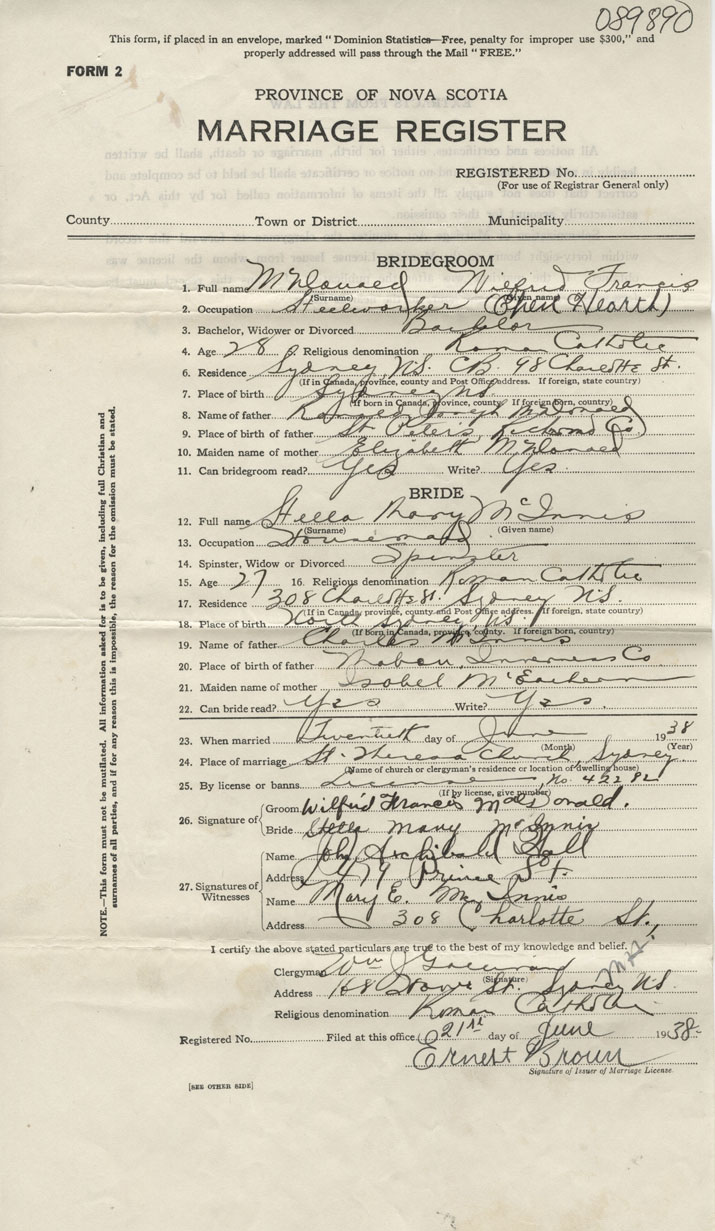 089890
This form, if placed in an envelope, marked "Dominion Statistics—Free, penalty for improper use $300," and
properly addressed will pass through the Mail "FREE."
FORM 2
PROVINCE OF NOVA SCOTIA
MARRIAGE REGISTER
REGISTERED No.
(For use of Registrar General only)
County Town or District Municipality
BRIDEGROOM
1. Full name McDonald Wilfrid Francis
(Surname) (Given name)
2. Occupation Steelworker (Open Hearth)
3. Bachelor, Widower or Divorced Bachelor
4. Age 28 Religious denomination Roman Catholic
6. Residence Sydney N.S. C.B. 98 Charlotte St.
(If in Canada, province, county and Post Office address. If foreign, state country)
7. Place of birth Sydney N.S.
(If born in Canada, province, county. If foreign born, country)
8. Name of father Joseph McDonald
9. Place of birth of father St. Peters Richmond Co.
10. Maiden name of mother Elizabeth McDonald
11. Can bridegroom read? Yes Write? Yes
BRIDE
12. Full name Stella Mary McInnis
(Surname) (Given name)
13. Occupation Housemaid
14. Spinster, Widow or Divorced Spinster
15. Age 27 16. Religious denomination Roman Catholic
17. Residence 308 Charlotte St. Sydney N.S.
(If in Canada, province, county and Post Office address. If foreign, state country)
18. Place of birth North Sydney N.S.
(If born in Canada, province, county. If foreign born, country)
19. Name of father Charles McInnis
20. Place of birth of father Mabou, Inverness Co
21. Maiden name of mother Isobel McEachern
22. Can bride read? Yes Write? Yes.
23. When married Twentieth day of June 1938
(Month) (Year)
24. Place of marriage St. Theresa Church, Sydney
(Name of church or clergyman's residence or location of dwelling house)
25. By license or banns License, No. 42282
(If by license, give number)
26. Signature of Groom Wilfrid Francis MacDonald.
Bride Stella Mary McInnis
27. Signatures of Witnesses
Name John Archibald Hall
Address 479 Prince St.
Name Mary E. McInnis
Address 308 Charlotte St.,
I certify the above stated particulars are true to the best of my knowledge and belief.
Clergyman Wm J
(Signature)
Address 168 St. Sydney N.S.
Religious denomination Roman Catholic
Registered No. Filed at this office 21st day of June 1938
Ernest Brown
Signature of Issuer of Marriage License.
[SEE OTHER SIDE]
NOTE.—This form must not be mutilated. All information asked for is to be given, including full Christian and
surnames of all parties, and if for any reason this is impossible, the reason for the omission must be stated.